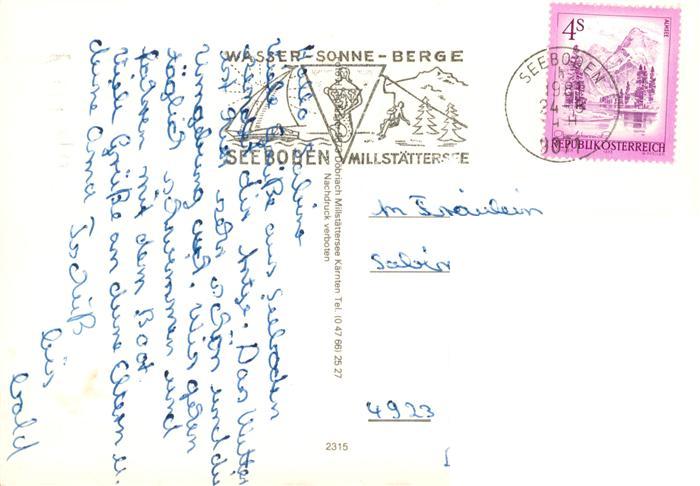 WASSER - SONNE - BERGE
SEEBODEN MILLSTÄTTERSEE
4S
ALMSEE
REPUBLIK ÖSTERREICH
SEEBODEN
9871
Hallo
viele Grüße aus Seeboden
sendet dir Antje. Das Wetter
ist sehr schön und d
Umgebung auch. Wir gehen
täglich schwimmen und
fahren mit dem Boot.
Viele Grüße an deine Eltern u.
deine Oma Tschüß
bis
bald
Döbriach Millstättersee Kärnten Tel. (0 47 66) 25 27
Nachdruck verboten
m Fräulein
Sabin
4923
2315